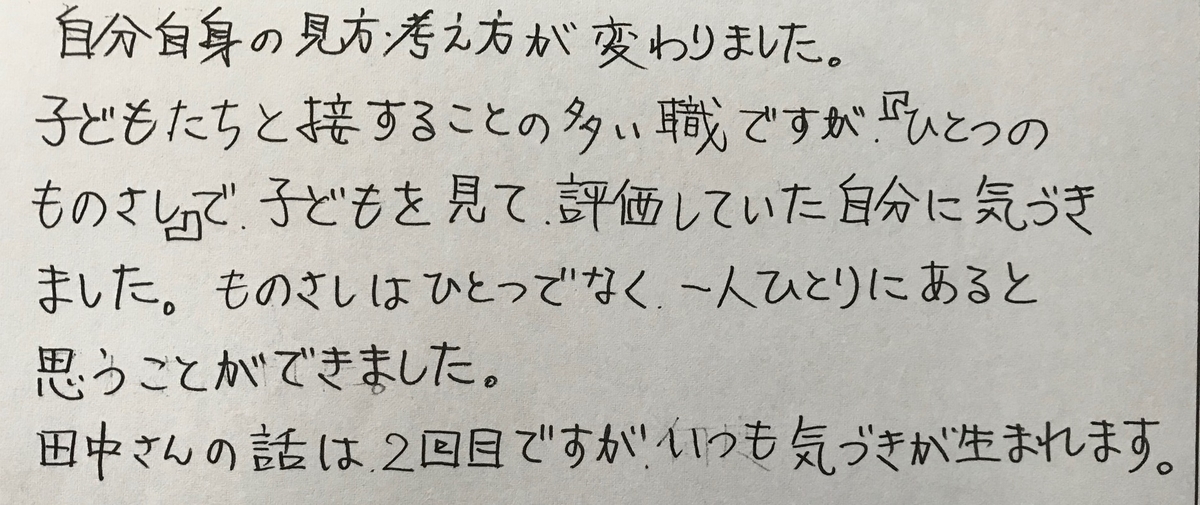 自分自身の見方・考え方が変わりました。
子どもたちと接することの多い職ですが、『ひとつの
ものさし』で、子どもを見て、評価していた自分に気づき
ました。ものさしはひとつでなく、一人ひとりにあると
思うことができました。
田中さんの話は、2回目ですが、いつも気づきが生まれます。